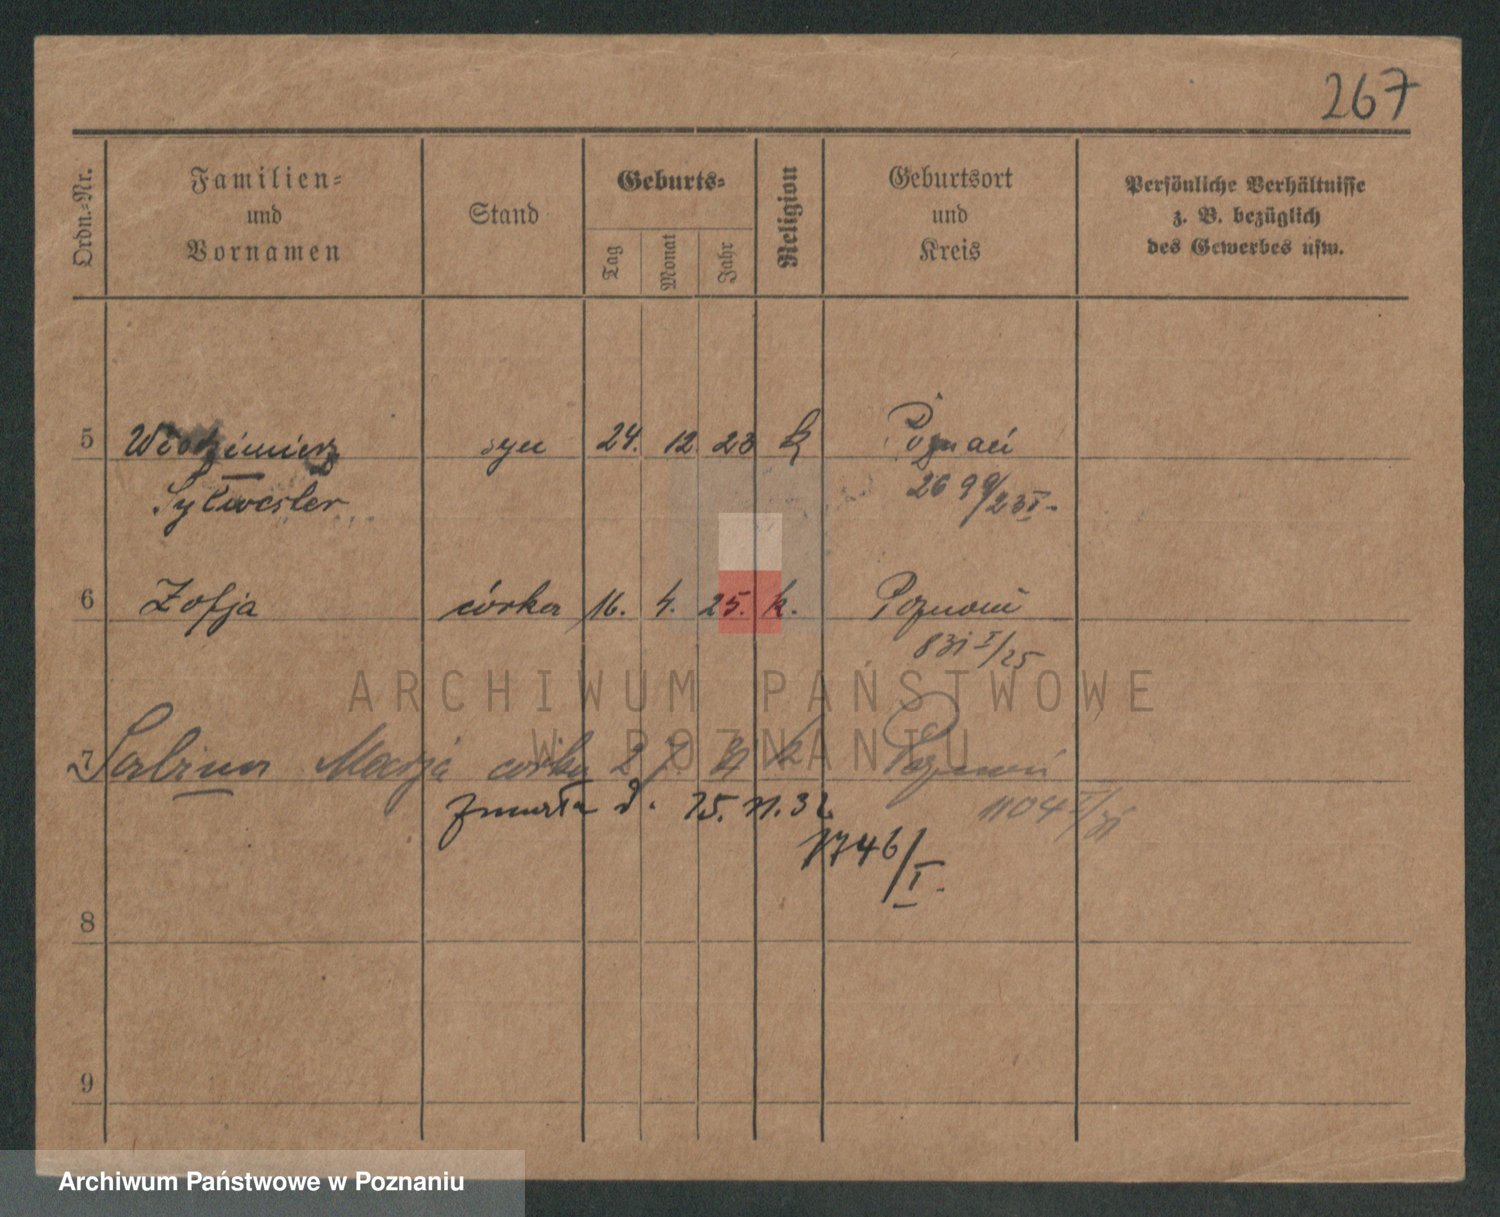 267
Ordn.-Nr. Familien- und Vornamen Stand Geburts- Tag Monat Jahr Religion Geburtsort und Kreis Persönliche Verhältnisse z. B. bezüglich des Gewerbes usw.
5 Włodzimierz syn 24. 12. 23 k Poznań
Sylwester 2699/23 I.
6 Zofja córka 16. 4. 25. k. Poznań
831 I/25
ARCHIWUM PAŃSTWOWE
W POZNANIU
7 Sabina Marja córka 2 7. 31 k Poznań
zmarła d. 15. 11. 32 1104 I/31
1746/I.
8
9
Archiwum Państwowe w Poznaniu